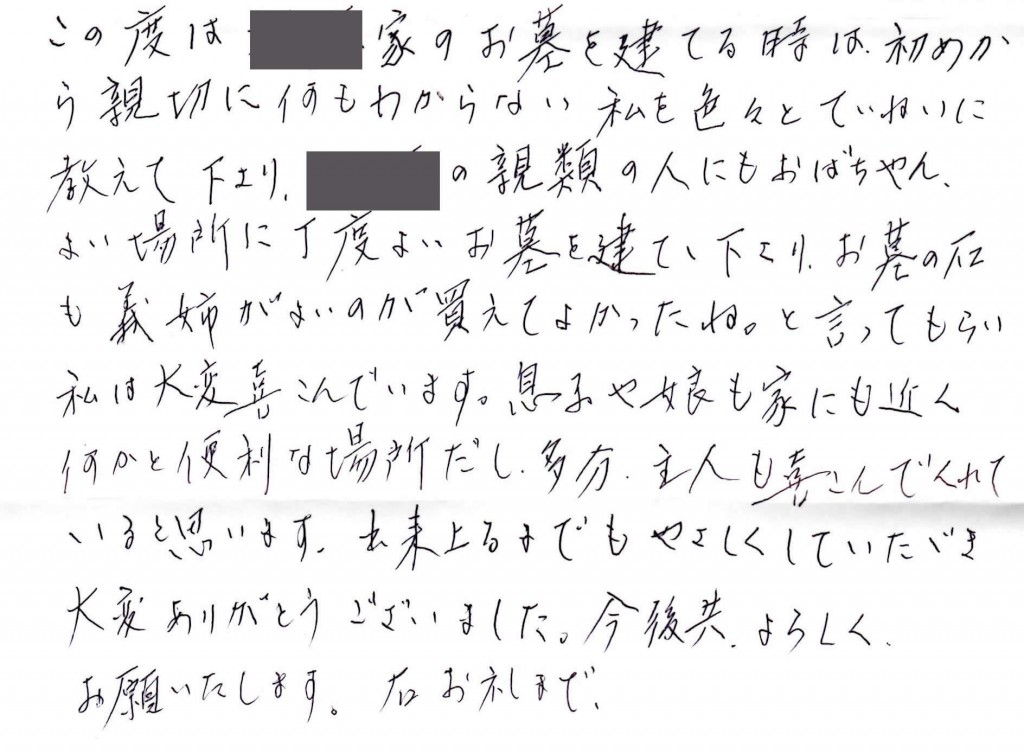 この度は 家のお墓を建てる時は、初めか
ら親切に何もわからない私を色々とていねいに
教えて下さり、 の親類の人にもおばちゃん、
よい場所に丁度よいお墓を建てい下さり、お墓の石
も義姉がよいのが買えてよかったね。と言ってもらい
私は大変喜こんでいます。息子や娘も家にも近く
何かと便利な場所だし、多分、主人も喜こんでくれて
いると思います、出来上るまでもやさしくしていただき
大変ありがとうございました。今後共、よろしく、
お願いたします。 右お礼まで、